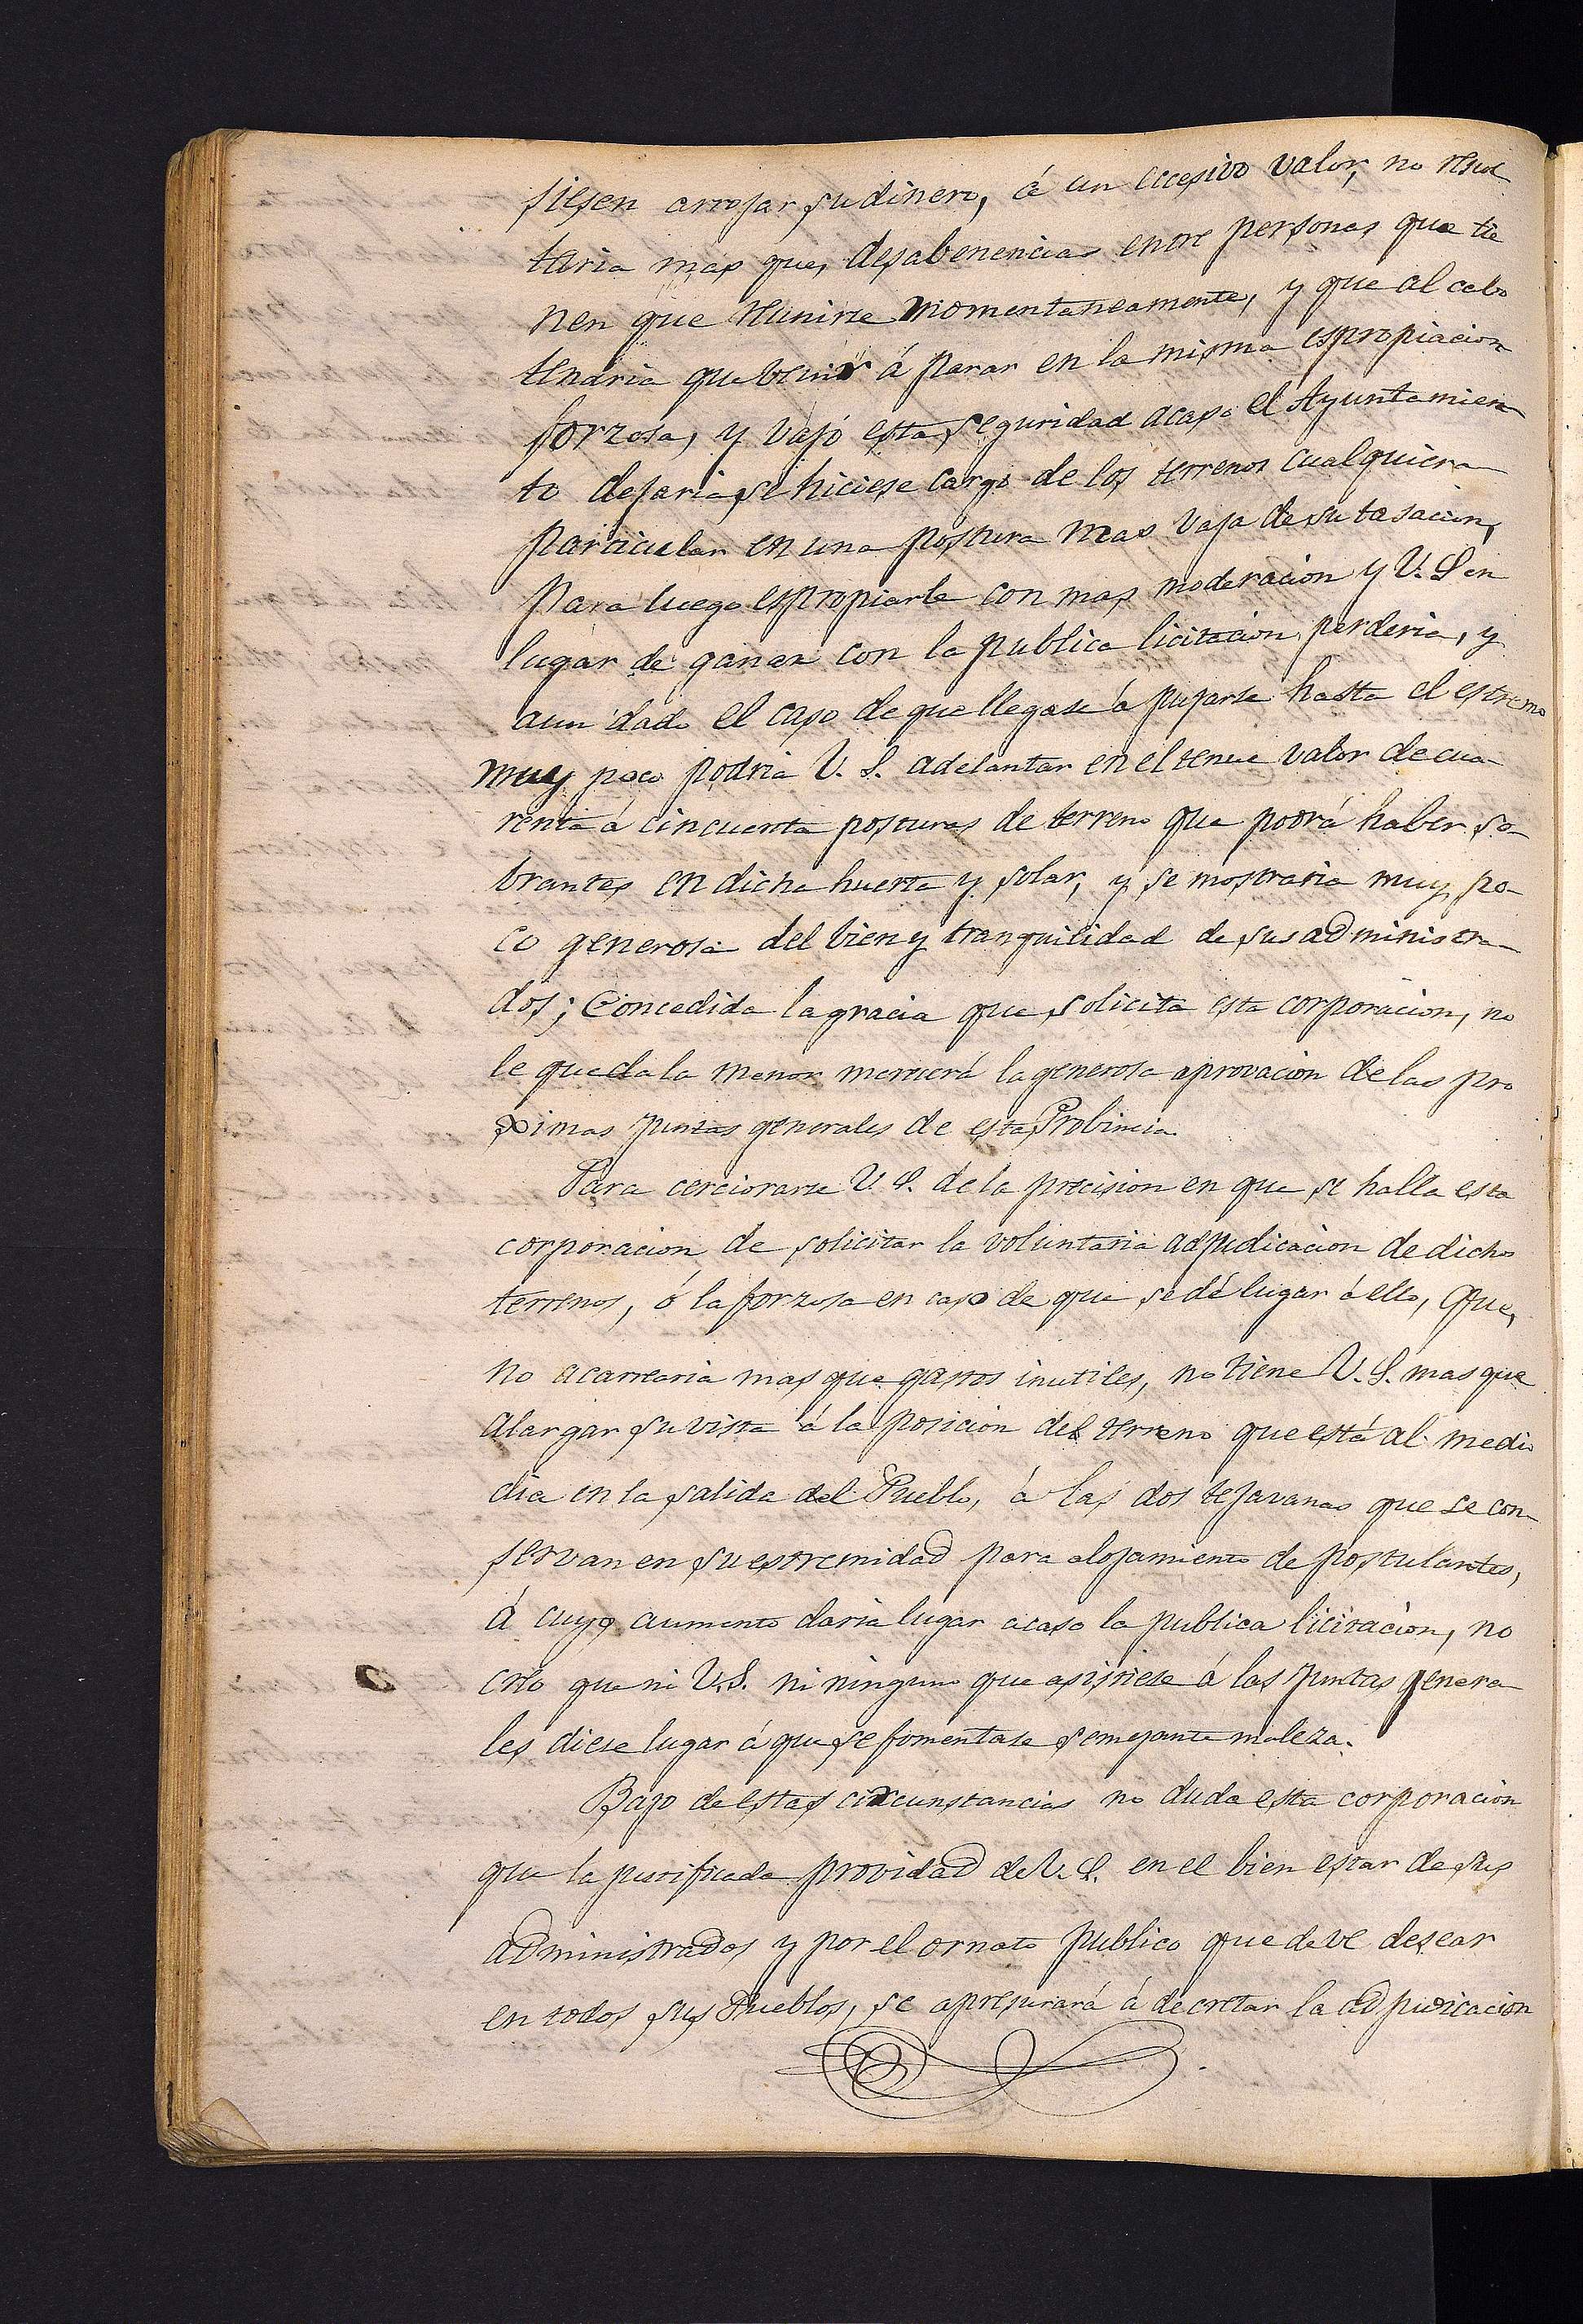 siesen arrojar su dinero, á un eccesivo valor, no resul
taria mas que, desabenencias entre personas que tie
nen que reunirse momentaneamente, y que al cabo
tendria que venir á parar en la misma espropiacion
forzosa, y vajo esta seguridad acaso el Ayuntamien
to dejaria se hiciese cargo de los terrenos cualquiera
particular en una postura mas vaja de su tasacion,
para luego espropiarle con mas moderacion y V. S en
lugar de ganar con la publica licitacion perderia, y
aun dado el caso de que llegase á pujarse hasta el estremo
muy poco podria V. S. adelantar en el tenue valor de cua-
renta á cincuenta posturas de terreno que podrá haber so-
brantes en dicha huerta y solar, y se mostraria muy po-
co generosa del bien y tranquilidad de sus administra-
dos; Concedida la gracia que solicita esta corporacion, no
le queda la menor merecerá la generosa aprovacion de las pro
ximas juntas generales de esta Probincia.
Para cerciorarse V. S. de la precision en que se halla esta
corporacion de solicitar la voluntaria adjudicacion de dichos
terrenos, ó la forzosa en caso de que se dé lugar á ello, que,
no acarrearia mas que gastos inutiles, no tiene V. S. mas que
alargar su vista á la posicion del terreno que está al medio
dia en la salida del Pueblo, á las dos tejavanas que se con-
servan en su estremidad para alojamiento de postulantes,
á cuyo aumento daria lugar acaso la publica licitacion, no
creo que ni V. S. ni ninguno que asistiese á las juntas genera
les diese lugar á que se fomentase semejante maleza.
Bajo de estas circunstancias no duda esta corporacion
que la purificada providad de V. S. en el bien estar de sus
administrados y por el ornato publico que deve desear
en todos sus Pueblos, se apresurará á decretar la adjudicacion